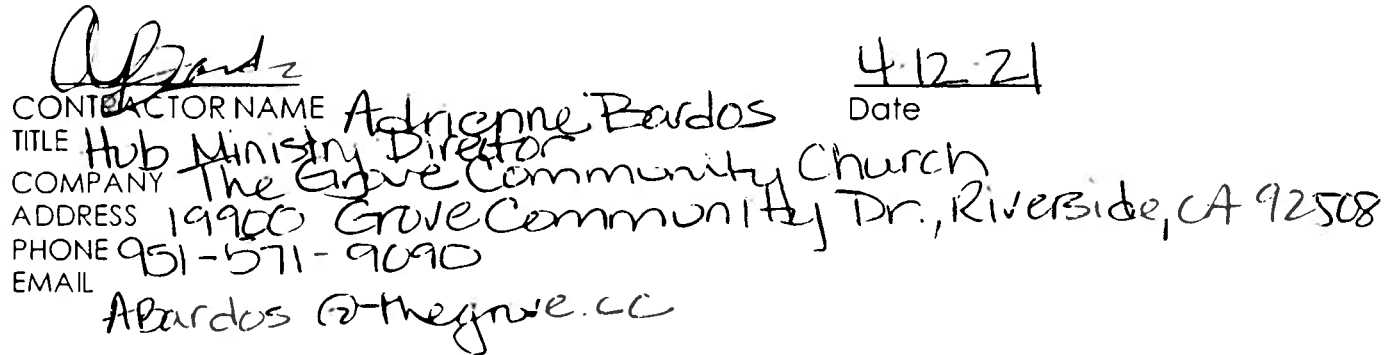 ABards 4·12·21
CONTRACTOR NAME Adrienne Bardos Date
TITLE Hub Ministry Director
COMPANY The Grove Community Church
ADDRESS 19900 Grove Community Dr., Riverside, CA 92508
PHONE 951-571-9090
EMAIL
ABardos @thegrove.cc